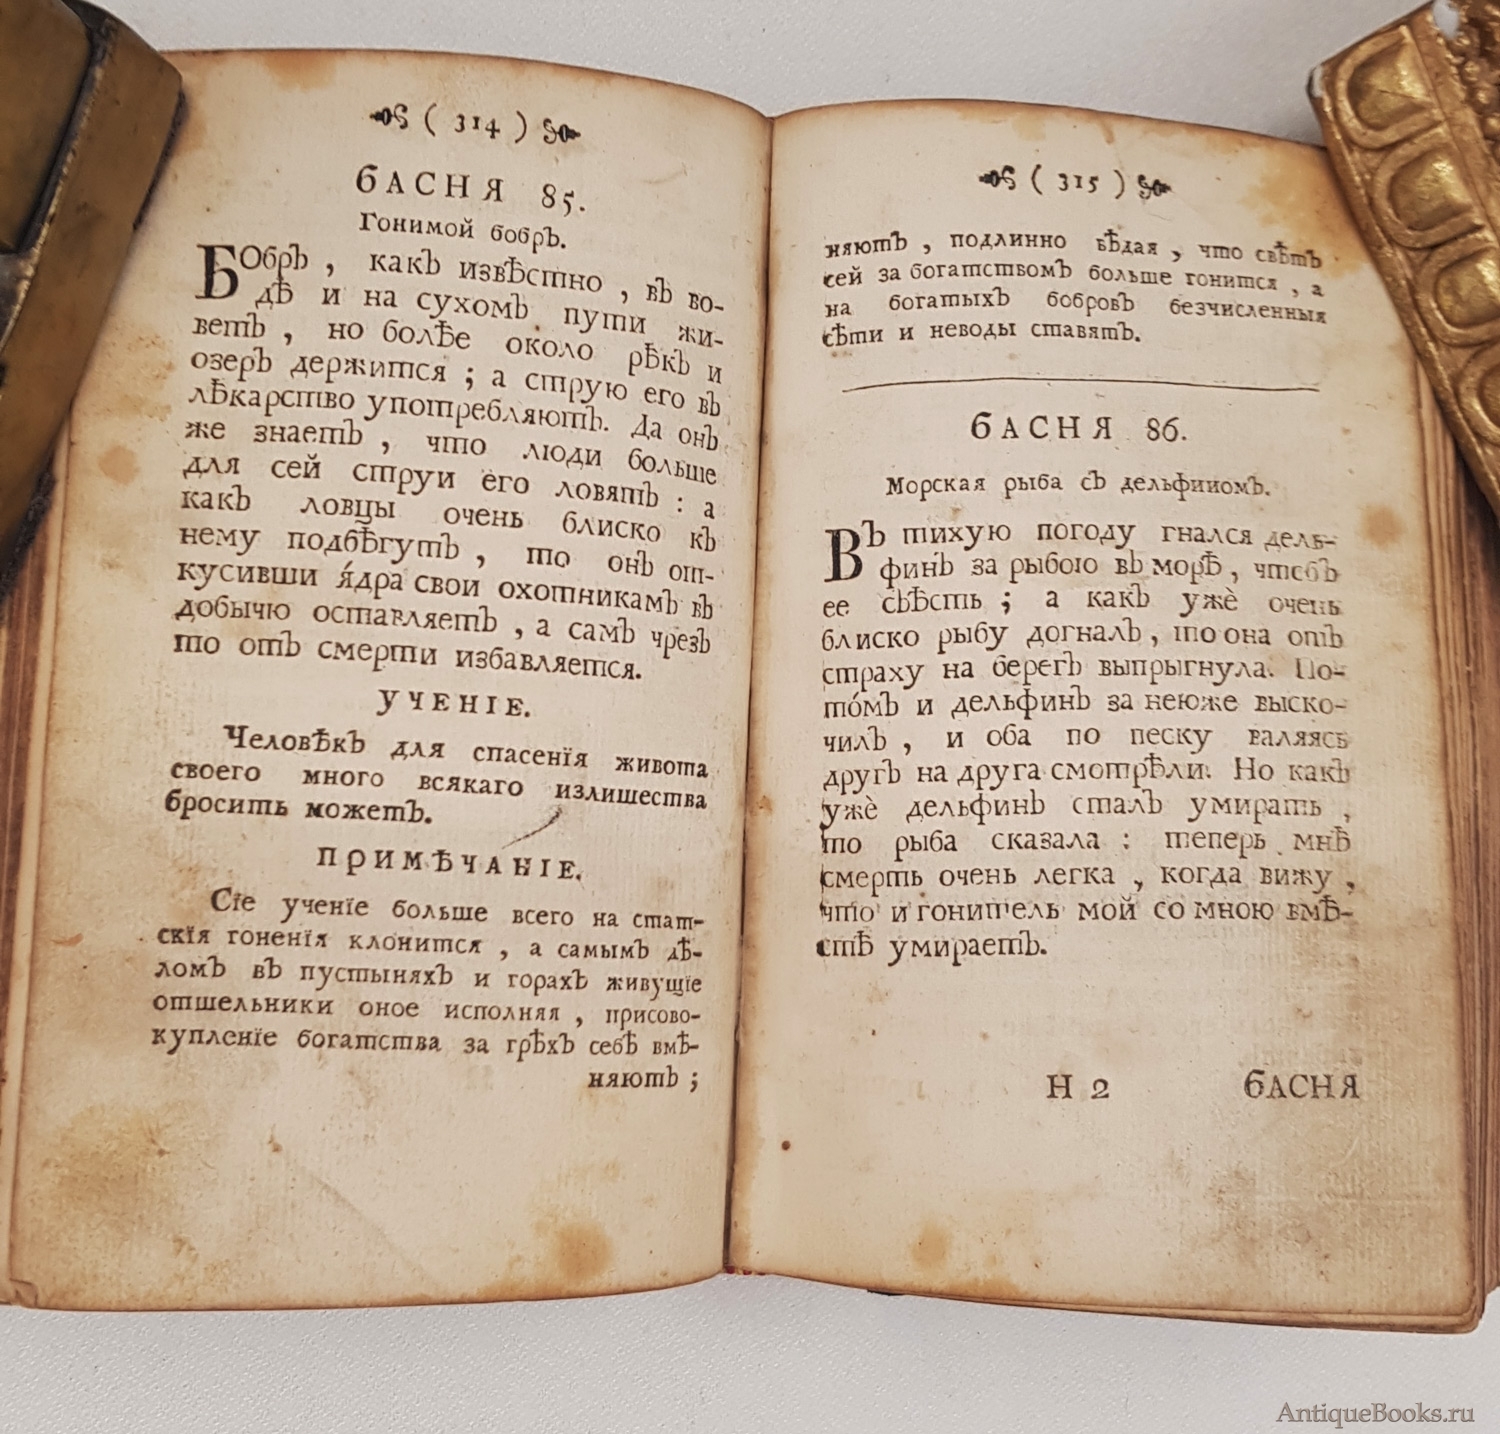 ( 314 )
БАСНЯ 85.
Гонимой бобръ.
БОбръ, какъ извѣстно, въ во-
дѣ и на сухомъ пути жи-
ветъ, но болѣе около рѣкъ и
озеръ держится; а струю его въ
лѣкарство употребляютъ. Да онъ
же знаетъ, что люди больше
для сей струи его ловятъ: а
какъ ловцы очень блиско къ
нему подбѣгутъ, то онъ от-
кусивши я́дра свои охотникамъ въ
добычю оставляетъ, а самъ чрезъ
то отъ смерти избавляется.
УЧЕНІЕ.
Человѣкъ для спасенїя живота
своего много всякаго излишества
бросить можетъ.
ПРИМѢЧАНІЕ.
Сїе ученїе больше всего на стат-
скїя гоненїя клонится, а самымъ дѣ-
ломъ въ пустыняхъ и горахъ живущїе
отшельники оное исполняя, присово-
купленїе богатства за грѣхъ себѣ вмѣ-
няютъ;
( 315 )
няютъ, подлинно вѣдая, что свѣтъ
сей за богатствомъ больше гонится, а
на богатыхъ бобровъ безчисленныя
сѣти и неводы ставятъ.
БАСНЯ 86.
Морская рыба съ дельфиномъ.
Въ тихую погоду гнался дель-
финъ за рыбою въ морѣ, чтобъ
ее съѣсть; а какъ ужѐ очень
блиско рыбу догналъ, то она отъ
страху на берегъ выпрыгнула. По-
то́мъ и дельфинъ за нею же выско-
чилъ, и оба по песку валяясь
другъ на друга смотрѣли. Но какъ
ужѐ дельфинъ сталъ умирать,
то рыба сказала: теперь мнѣ
смерть очень легка, когда вижу,
что и гонитель мой со мною вмѣ-
стѣ умираетъ.
Н 2 БАСНЯ
AntiqueBooks.ru